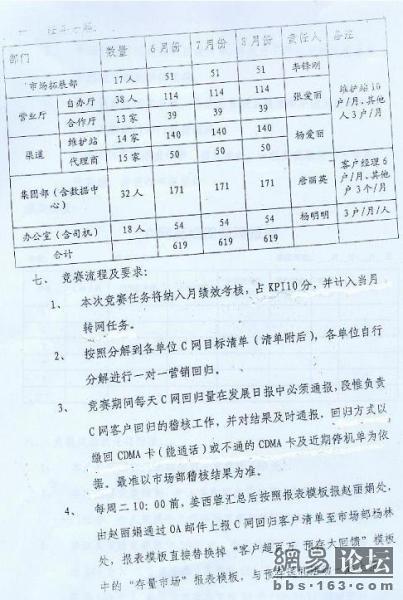 部门 数量 6月份 7月份 8月份 责任人 备注
市场拓展部 17人 51 51 51 李锋刚
营业厅 自办厅 38人 114 114 114 张爱丽 维护站10户/月、其他人3户/月
合作厅 13家 39 39 39
渠道 维护站 14家 140 140 140 杨爱丽
代理商 15家 50 50 50
集团部（含数据中心） 32人 171 171 171 唐丽英 客户经理6户/月、其他户3个/月
办公室（含司机） 18人 54 54 54 杨明明 3户/月/人
合计 619 619 619
七、 竞赛流程及要求：
1、 本次竞赛任务将纳入月绩效考核，占KPI10分，并计入当月
转网任务。
2、 按照分解到各单位C网目标清单（清单附后），各单位自行
分解进行一对一营销回归。
3、 竞赛期间每天C网回归量在发展日报中必须通报，段惟负责
C网客户回归的稽核工作，并对结果及时通报，回归方式以
缴回CDMA卡（能通话）或不通的CDMA卡及近期停机单为依
据。最准以市场部稽核结果为准。
4、 每周二10：00前，姜西蓉汇总后按照报表模板报赵丽娟处，
由赵丽娟通过OA邮件上报C网回归客户清单至市场部杨林
处，报表模板直接替换掉“客户超百五 预存大回馈”模板
中的“存量市场”报表模板，与预存
網易 论坛
bbs·163.com